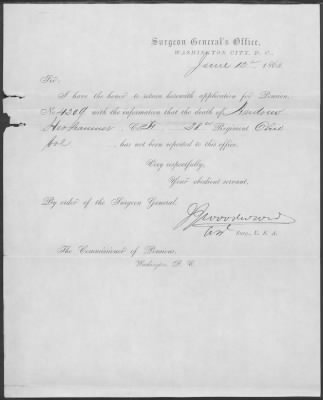 Surgeon General's Office,
WASHINGTON CITY, D. C.,
June 12th 186
Sir:
I have the honor to return herewith application for Pension,
No 4209 with the information that the death of
Co. Regiment Ohio
Vol , has not been reported to this office.
Very respectfully,
Your obedient servant,
By order of the Surgeon General:
J J Woodward
Surg., U. S. A.
The Commissioner of Pensions,
Washington, D. C.